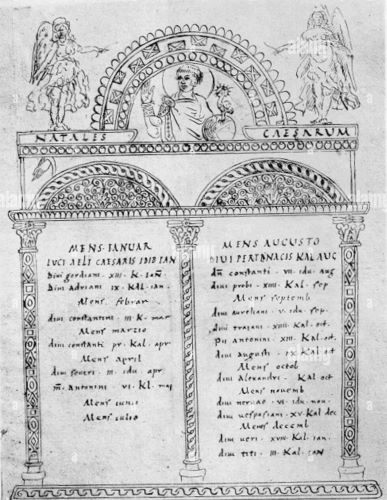 NATALES CAESARUM
MENS. IANUAR
LUCI AELI CAESARIS IDIB IAN
Divi gordiani · XIII · K · IAN
Divi Adriani IX · Kal · ian ·
Mens · febrar
divi constantini · III · K · mar
Mens marzio
divi constanti pr · Kal · apr
Mens April
divi severi · III · idu · apr
M · Antonini · VI · Kl · maj
Mens iunio
Mens iulio
MENS AUGUSTO
DIVI PERTINACIS KAL AUG
constanti · VII · idu · aug
divi probi · XIII · Kal · sep
Mens septemb
divi aureliani · V · idu · sep
divi traiani · XIIII · Kal · oct
antonini · XIII · Kal · oct
divi augusti · IX · Kal · oct
Mens octob
divi Alexandri · Kal · oct
Mens novemb
divi nervae · VI · idu · nov
divi vespasiani · XV · Kal dec
Mens decemb
divi veri · XVIII · Kal · ian ·
divi titi · III · Kal · IAN